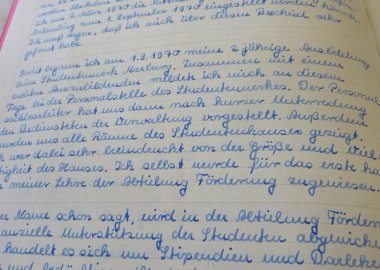 am 2. März 1970 die
Anfang zum 1. September 1970 eingestellt werden könnte
Ich muß sagen, daß ich mich über diesen Bescheid sehr
gefreut habe.
Somit begann ich am 1.9.1970 meine 2 jährige Ausbildung
beim Studentenwerk Marburg. Zusammen mit einem
weiteren Auszubildenden meldete ich mich an diesem
Tage bei der Personalstelle des Studentenwerkes. Der Personal
sachbearbeiter hat uns dann nach kurzer Unterredung
den Bediensteten der Verwaltung vorgestellt. Außerdem
wurden uns alle Räume des Studentenhauses gezeigt.
Ich war dabei sehr beeindruckt von der Größe und Viel
tigkeit des Hauses. Ich selbst wurde für das erste ha
meiner Lehre der Abteilung Förderung zugewiesen.
er Name schon sagt, wird in der Abteilung Förder
nanzielle Unterstützung der Studenten abgewick
handelt es sich um Stipendien und Darlehe